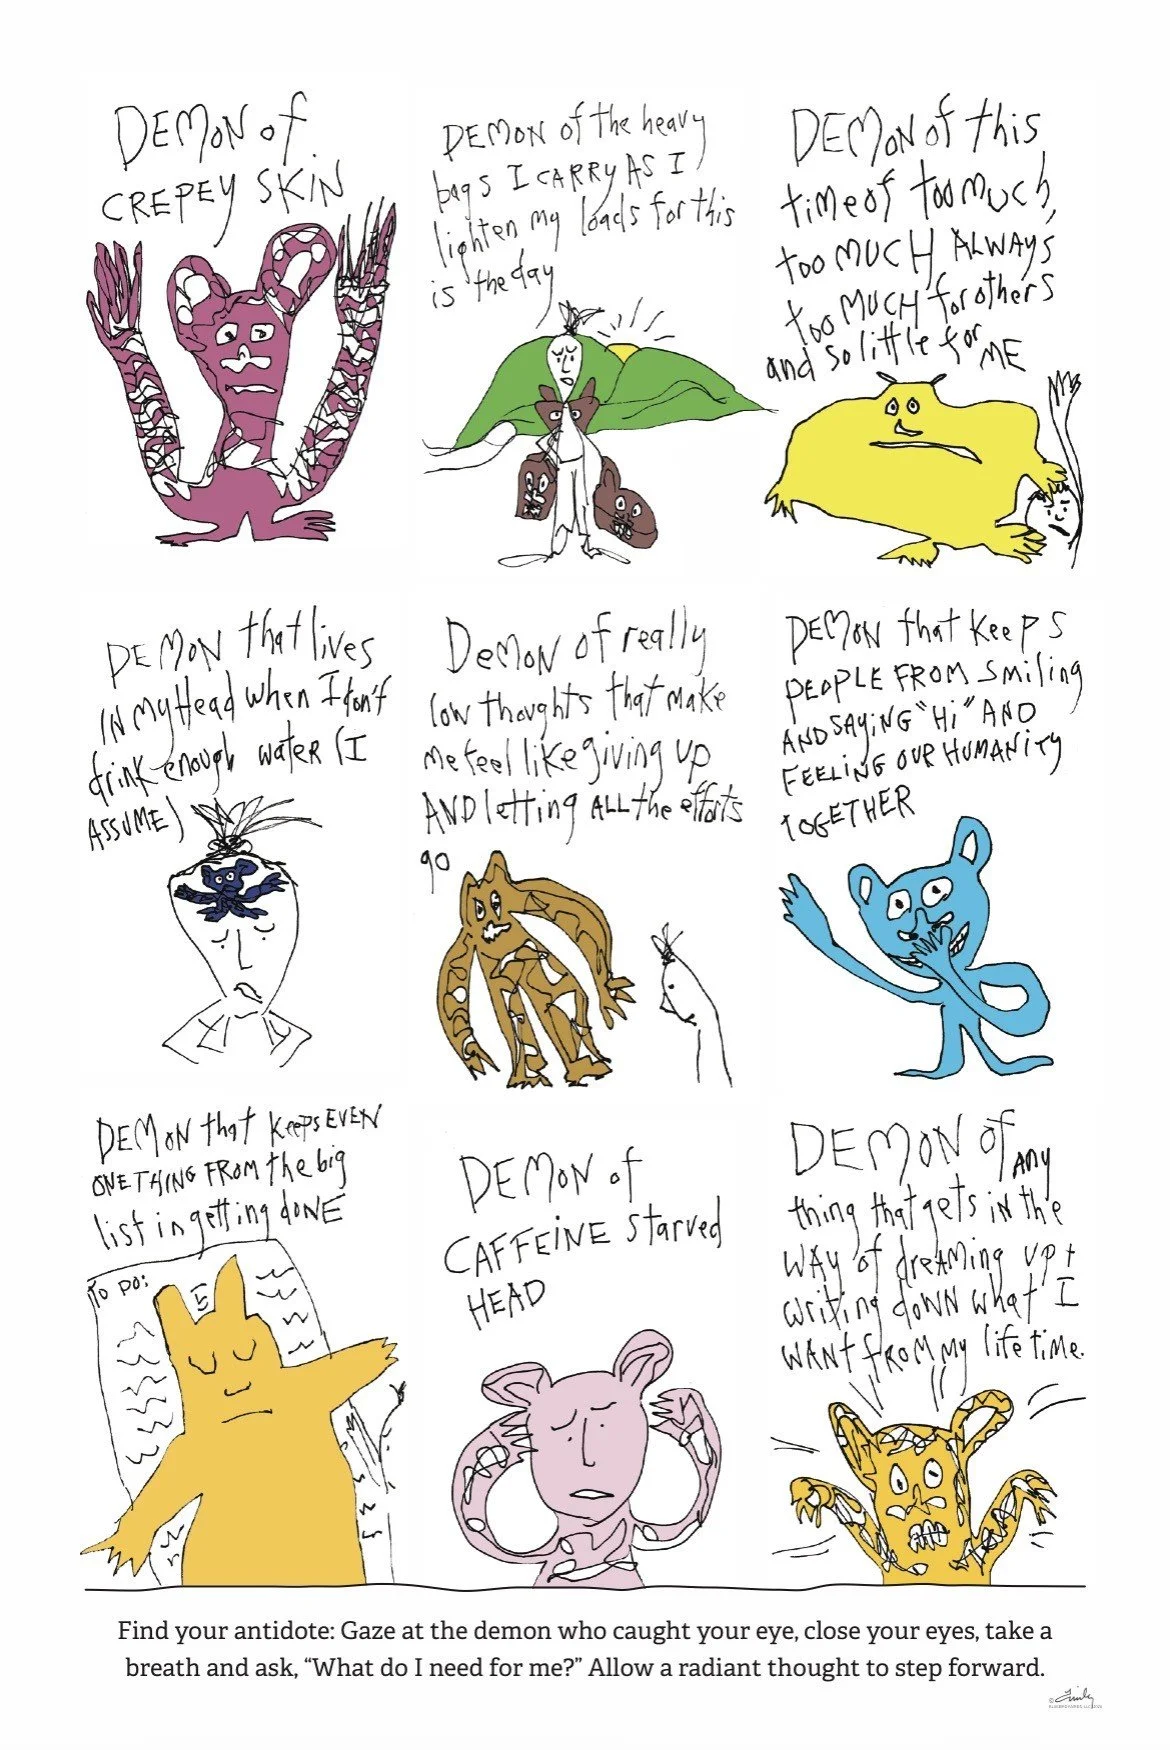 DEMON of
CREPEY SKIN
DEMON of the heavy
bags I CARRY AS I
lighten my loads for this
is the day
DEMON of this
time of too much,
too MUCH ALWAYS
too MUCH for others
and so little for ME
DEMON that lives
IN my Head when I don't
drink enough water (I
ASSUME)
DeMON of really
low thoughts that make
me feel like giving up
AND letting ALL the efforts
go
DEMON that keeps
PEOPLE FROM smiling
AND SAYING "Hi" AND
FEELING OUR HUMANITY
TOGETHER
DEMON that keeps EVEN
ONE THING FROM the big
list in getting DONE
To Do:
DEMON of
CAFFEINE starved
HEAD
DEMON of ANY
thing that gets in the
WAY of dreaming up +
writing down what I
WANT fROM my life time.
Find your antidote: Gaze at the demon who caught your eye, close your eyes, take a
breath and ask, “What do I need for me?” Allow a radiant thought to step forward.